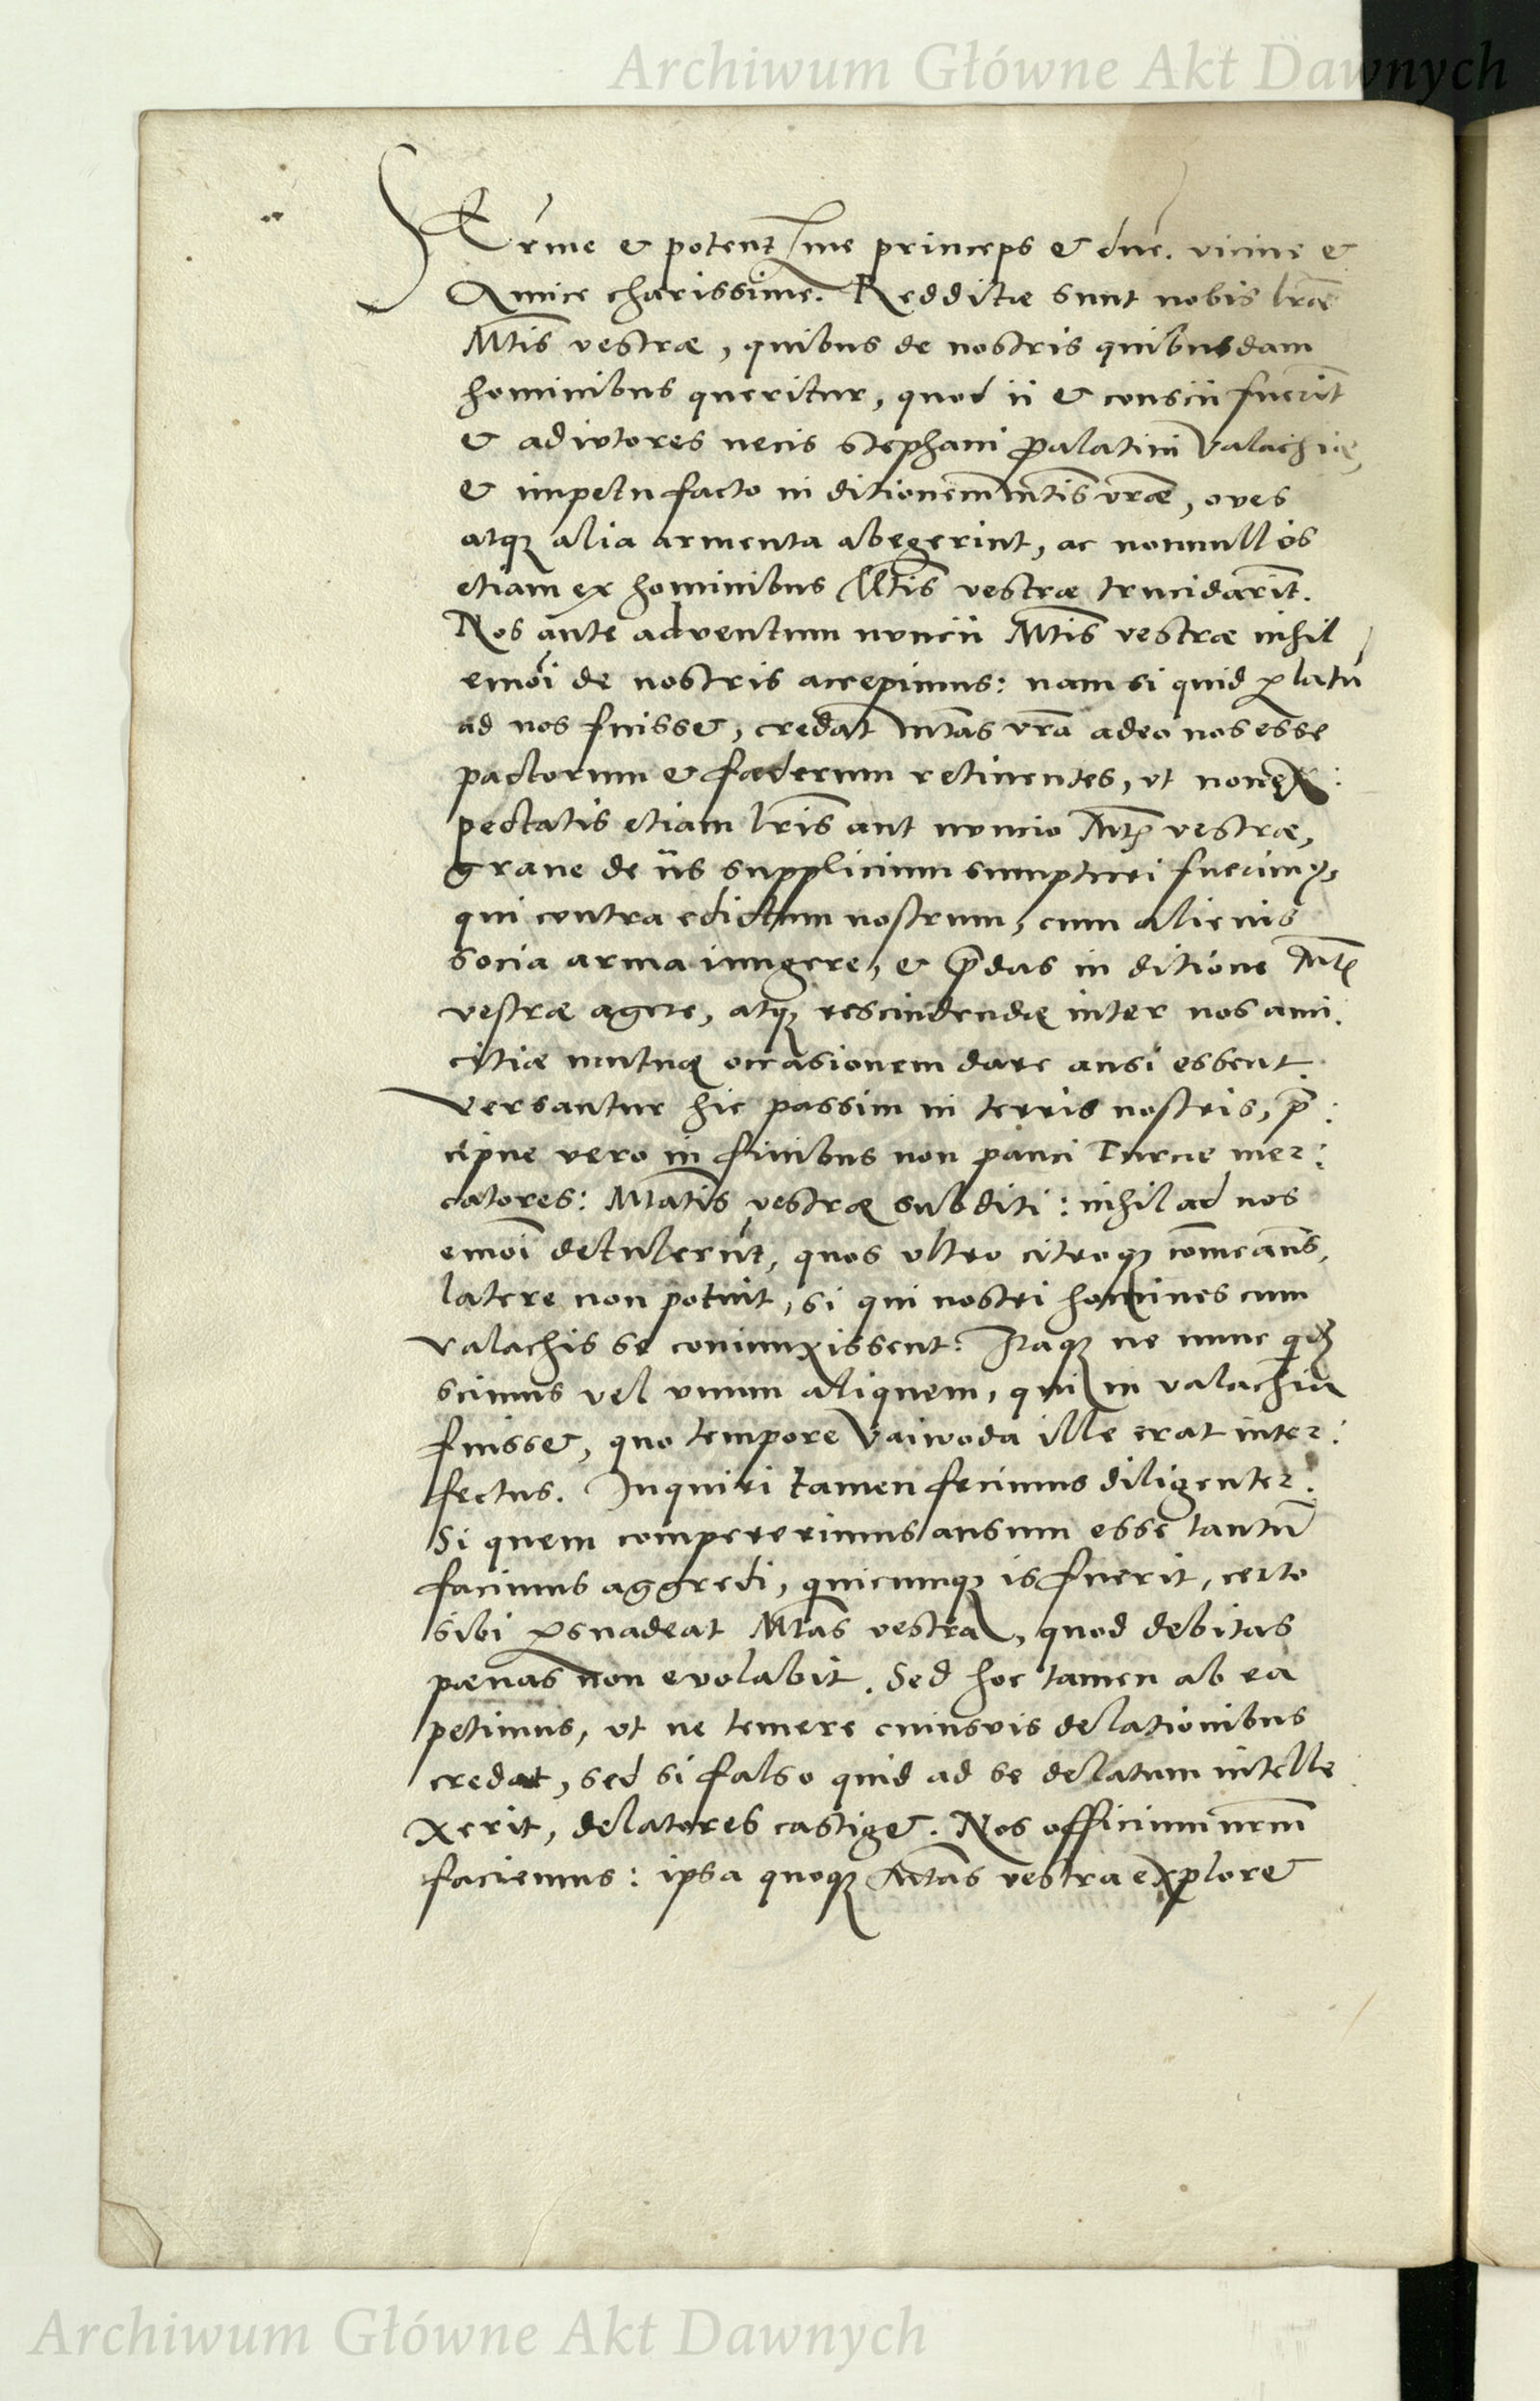 Archiwum Główne Akt Dawnych
Serme & potentissme princeps & dne. vicine &
Amice charissime. Redditæ sunt nobis lræ
Mtis vestræ, quibus de nostris quibusdam
hominibus queritur, quod ii & conscii fuerit
& adiutores necis Stephani Palatini Valachiæ,
& impetu facto in ditionem mtis vræ, oves
atq; alia armenta abegerint, ac nonnullos
etiam ex hominibus Mtis vestræ trucidarit.
Nos ante adventum nuncii Mtis vestræ nihil
emoi de nostris accepimus: nam si quid platu
ad nos fuisset, credat Mtas vra adeo nos esse
pactorum & fæderum retinentes, ut non ex:
pectatis etiam lris aut nuncio Mtis vestræ,
grave de iis supplicium sumpturi fuerimus,
qui contra edictum nostrum, cum alienis
socia arma iungere, & prædas in ditione Mtis
vestræ agere, atq; rescindendæ inter nos ami:
citiæ mutuæ occasionem dare ausi essent.
Versantur hic passim in terris nostris, præ:
cipue vero in finibus non pauci Turcie mer:
catores: Matis vestræ subditi: nihil ad nos
emoi detulerut, quos ultro citroq; comeans,
latere non potuit, si qui nostri homines cum
Valachis se coniunxissent. Itaq; ne nunc qde
scimus vel unum aliquem, qui in Valachia
fuisset, quo tempore Vaiwoda ille erat inter:
fectus. Inquiri tamen fecimus diligenter.
Si quem compererimus ausum esse tantu
facinus aggredi, quicunq; is fuerit, certo
sibi psuadeat Mtas vestra, quod debitas
pænas non evolabit. Sed hoc tamen ab ea
petimus, ut ne temere cuiusvis delationibus
credat, sed si falso quid ad se delatum intelle
xerit, delatores castiget. Nos officium nrm
faciemus: ipsa quoq; Mtas vestra exploret
Archiwum Główne Akt Dawnych